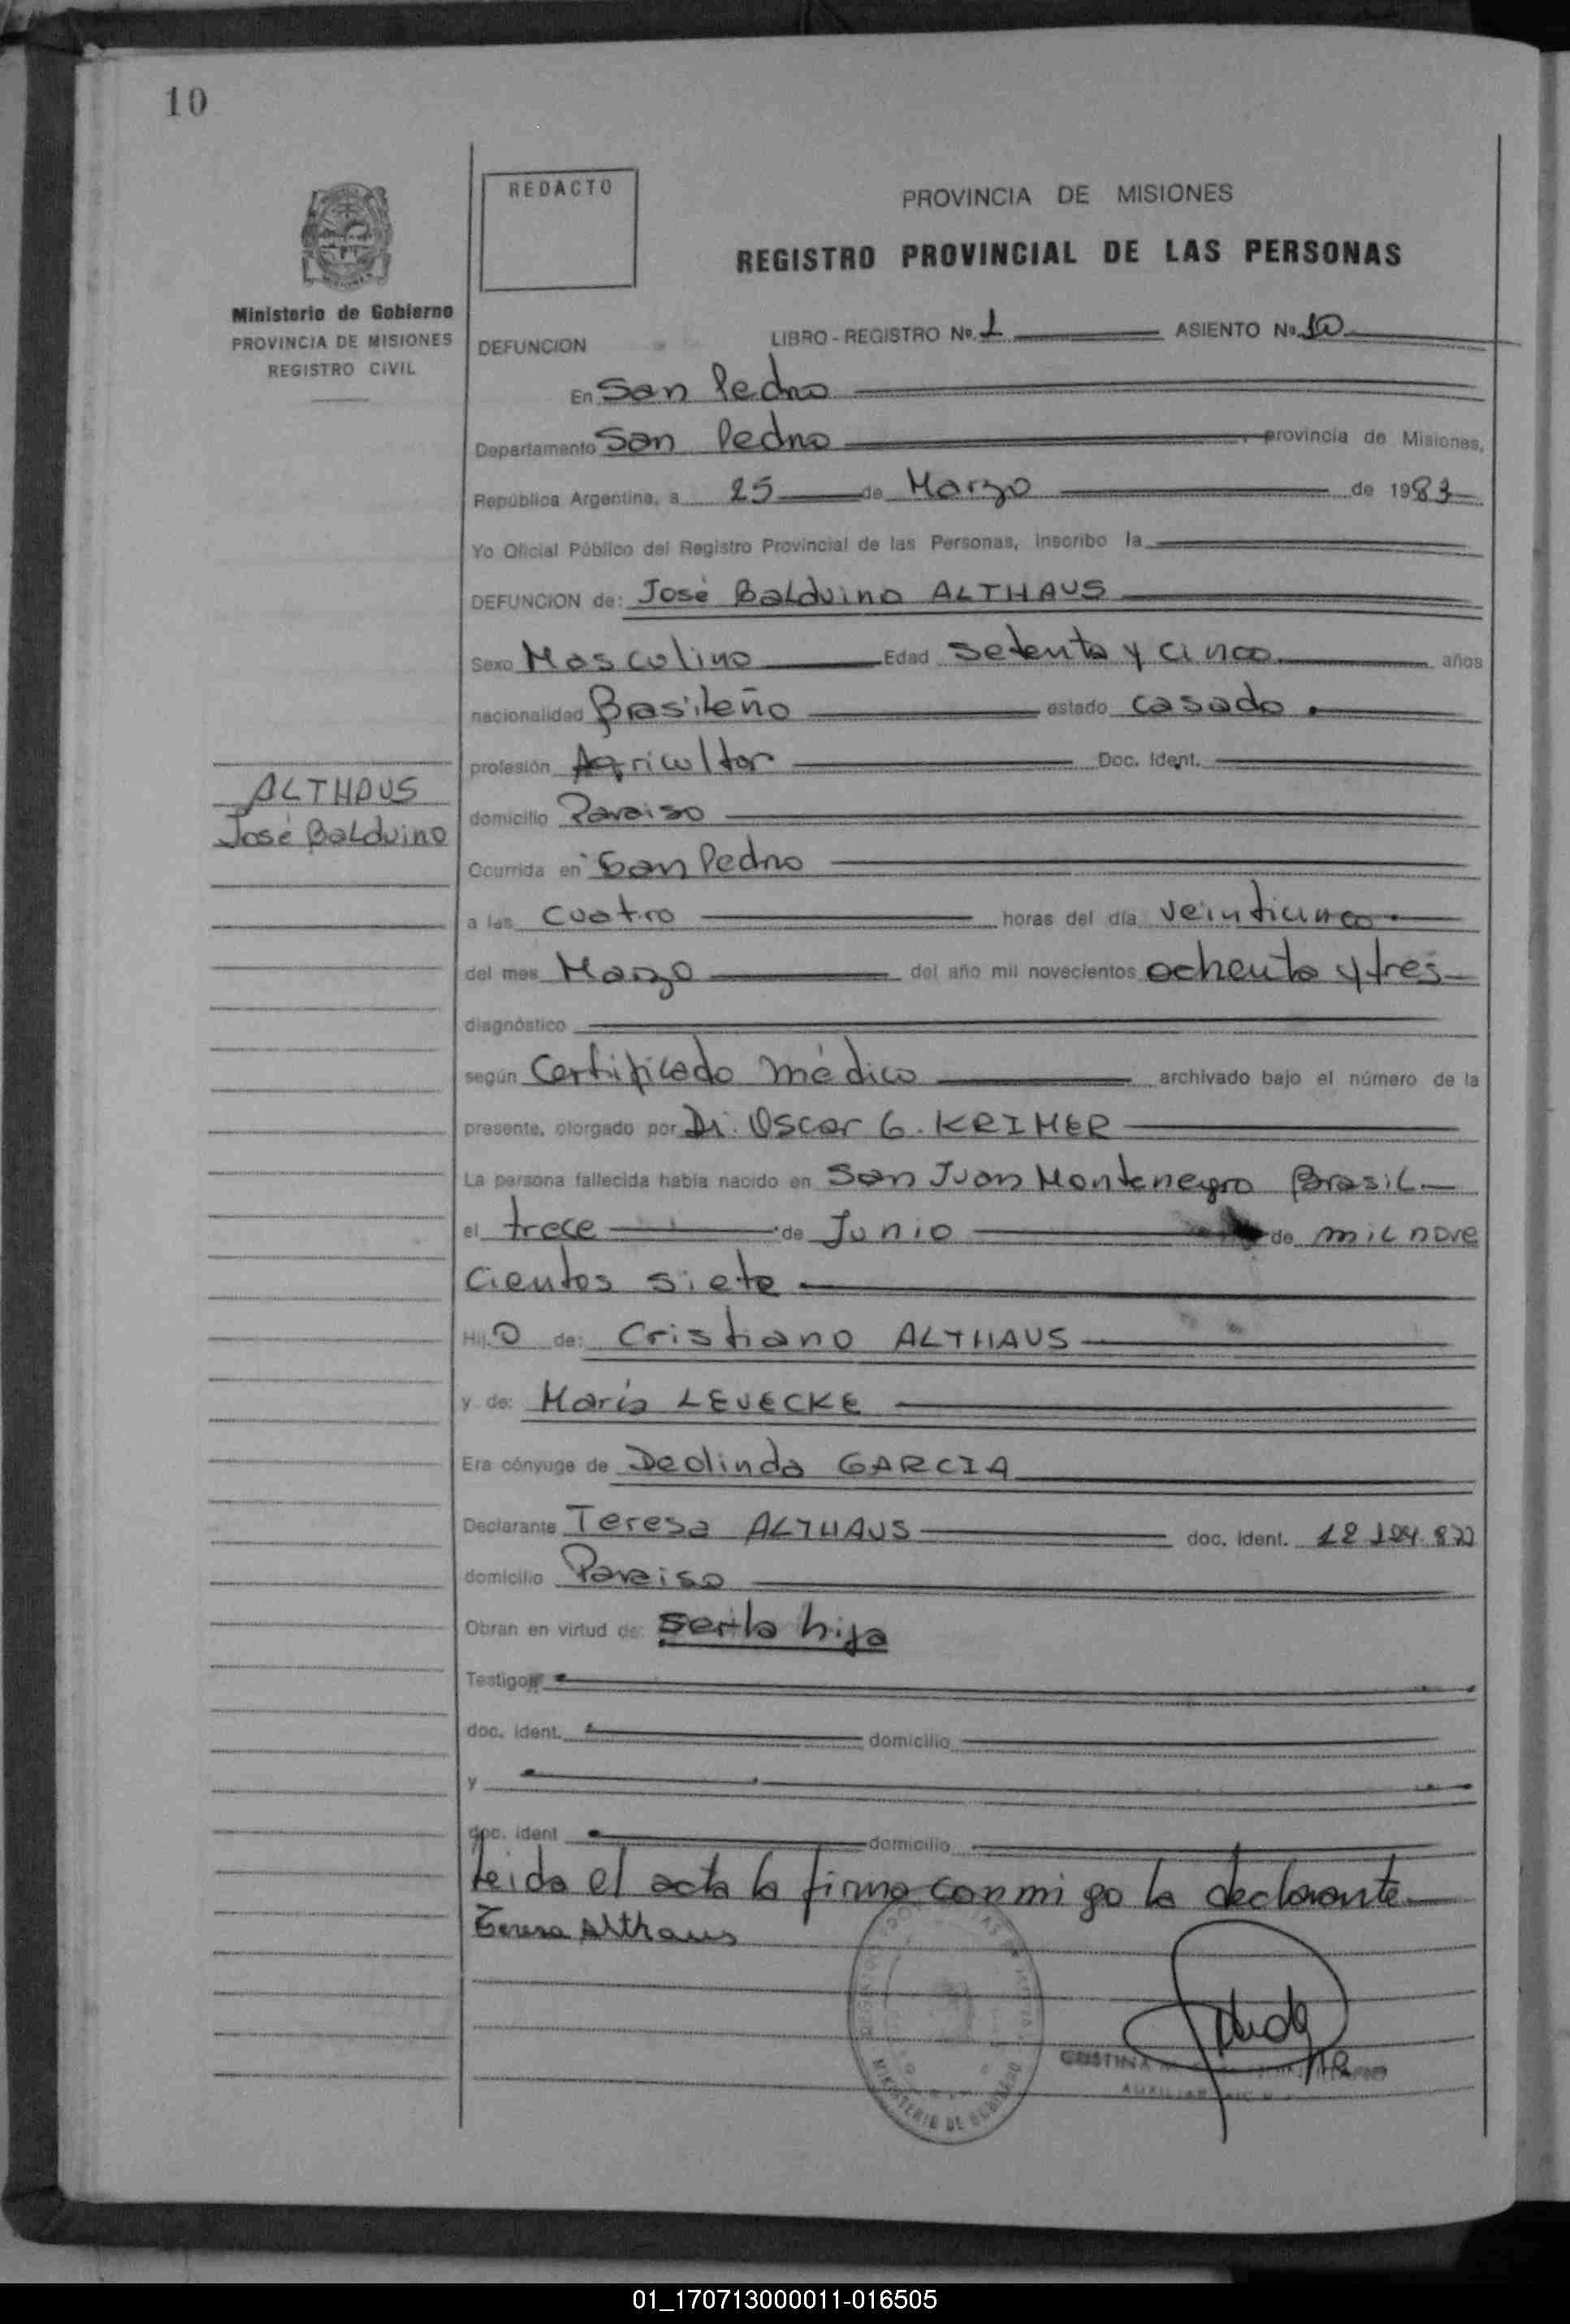 10
REDACTO
PROVINCIA DE MISIONES
REGISTRO PROVINCIAL DE LAS PERSONAS
Ministerio de Gobierno
PROVINCIA DE MISIONES
REGISTRO CIVIL
DEFUNCION LIBRO - REGISTRO Nº. 1 ASIENTO Nº. 10
En San Pedro
Departamento San Pedro, provincia de Misiones,
República Argentina, a 25 de Marzo de 1983
Yo Oficial Público del Registro Provincial de las Personas, inscribo la
DEFUNCION de: José Balduino ALTHAUS
Sexo Masculino Edad setenta y cinco años
nacionalidad Brasileño estado casado.
profesión Agricultor Doc. Ident.
ALTHAUS
José Balduino
domicilio Paraiso
Ocurrida en San Pedro
a las cuatro horas del día veinticinco
del mes Marzo del año mil novecientos ochenta y tres
diagnóstico
según Certificado médico archivado bajo el número de la
presente, otorgado por Dr. Oscar G. KRIMER
La persona fallecida había nacido en San Juan Montenegro Brasil
el trece de Junio de mil nove
cientos siete
Hij O de: Cristiano ALTHAUS
y de: María LEVECKE
Era cónyuge de Deolinda GARCIA
Declarante Teresa ALTHAUS doc. ident.
domicilio Paraiso
Obran en virtud de: ser la hija
Testigos
doc. ident. domicilio
y
doc. ident domicilio
Leida el acta la firma conmigo la declarante
Teresa Althaus
MINISTERIO DE GOBIERNO
CRISTINA
AUXILIAR
01_170713000011-016505